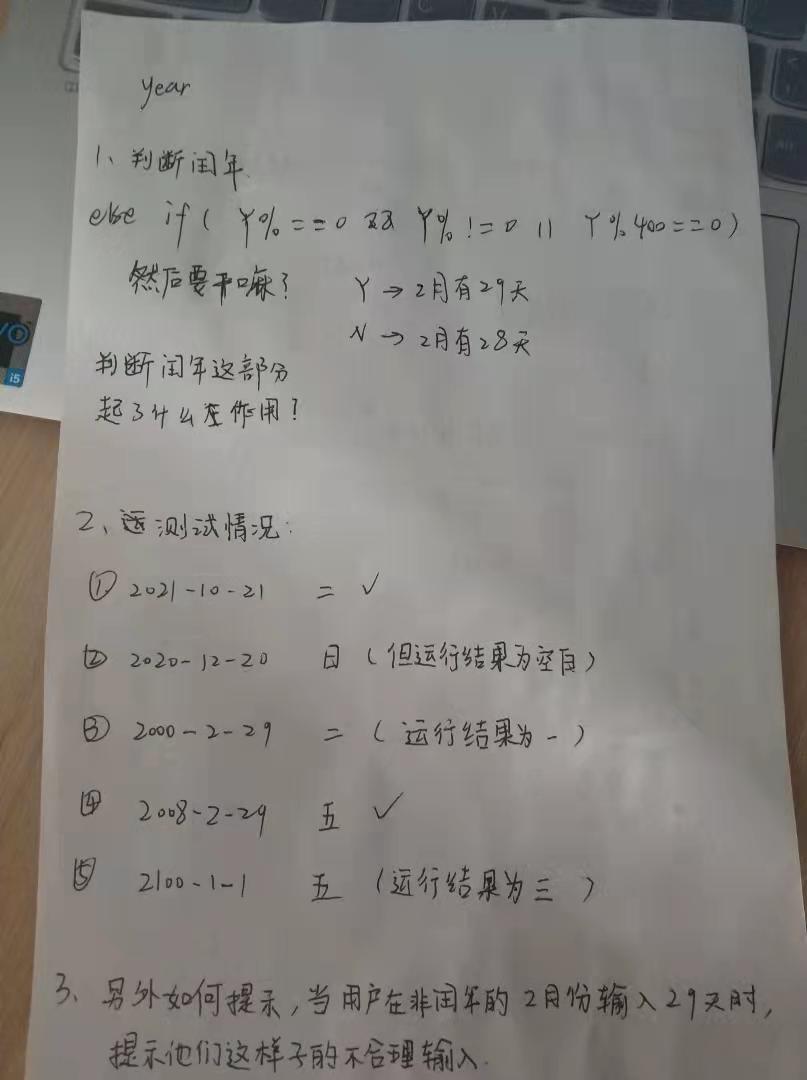 year
1、判断闰年.
else if( Y%==0 && Y%!=0 || Y%400==0)
然后要干嘛? Y→2月有29天
N→2月有28天
判断闰年这部分
起了什么在作用?
2、测试情况:
① 2021-10-21 = ✓
② 2020-12-20 日(但运行结果为空白)
③ 2000-2-29 二(运行结果为一)
④ 2008-2-29 五 ✓
⑤ 2100-1-1 五(运行结果为三)
3、另外如何提示,当用户在非闰年的2月份输入29天时,
提示他们这样子的不合理输入.
i5